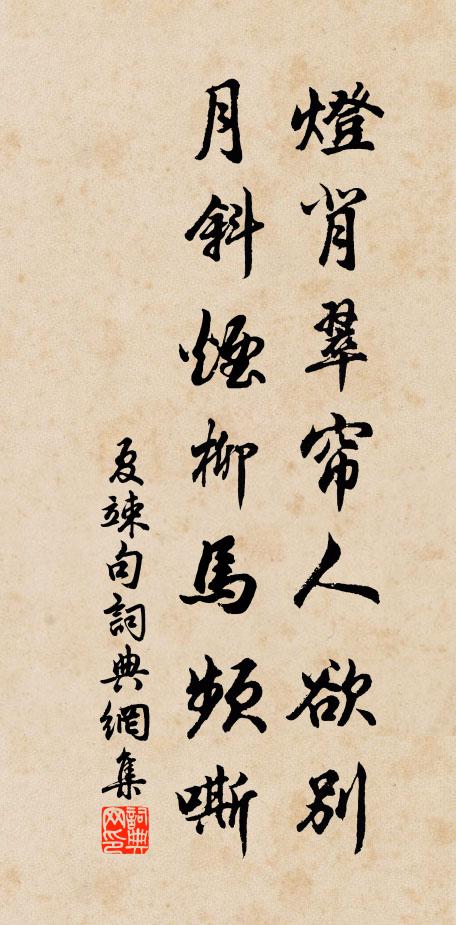 燈背翠帘人欲別
月斜煙柳馬頻嘶
夏竦句詞典網集
詞典網印